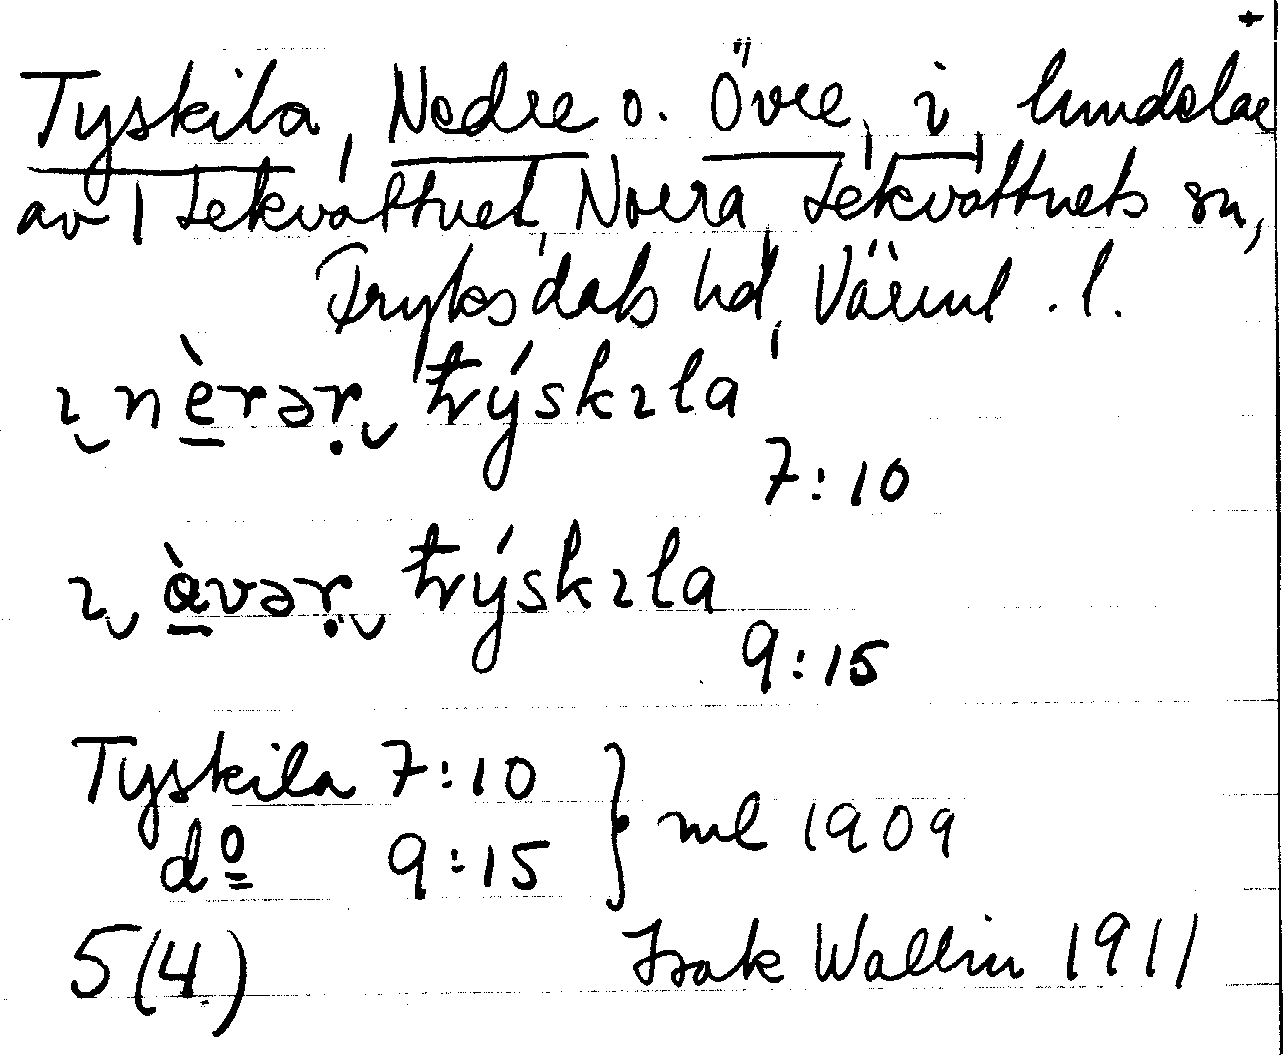 Tyskila, Nedre o. Övre, i, hemdelar
av 1 Lekvattnet, Norra Lekvattnets sn,
Fryksdals hd, Värml. l.
ɩ nèrər trýskɩla
7:10
ɩ àvər trýskɩla
9:15
Tyskila 7:10
dº 9:15 } ml 1909
5(4) Isak Wallin 1911